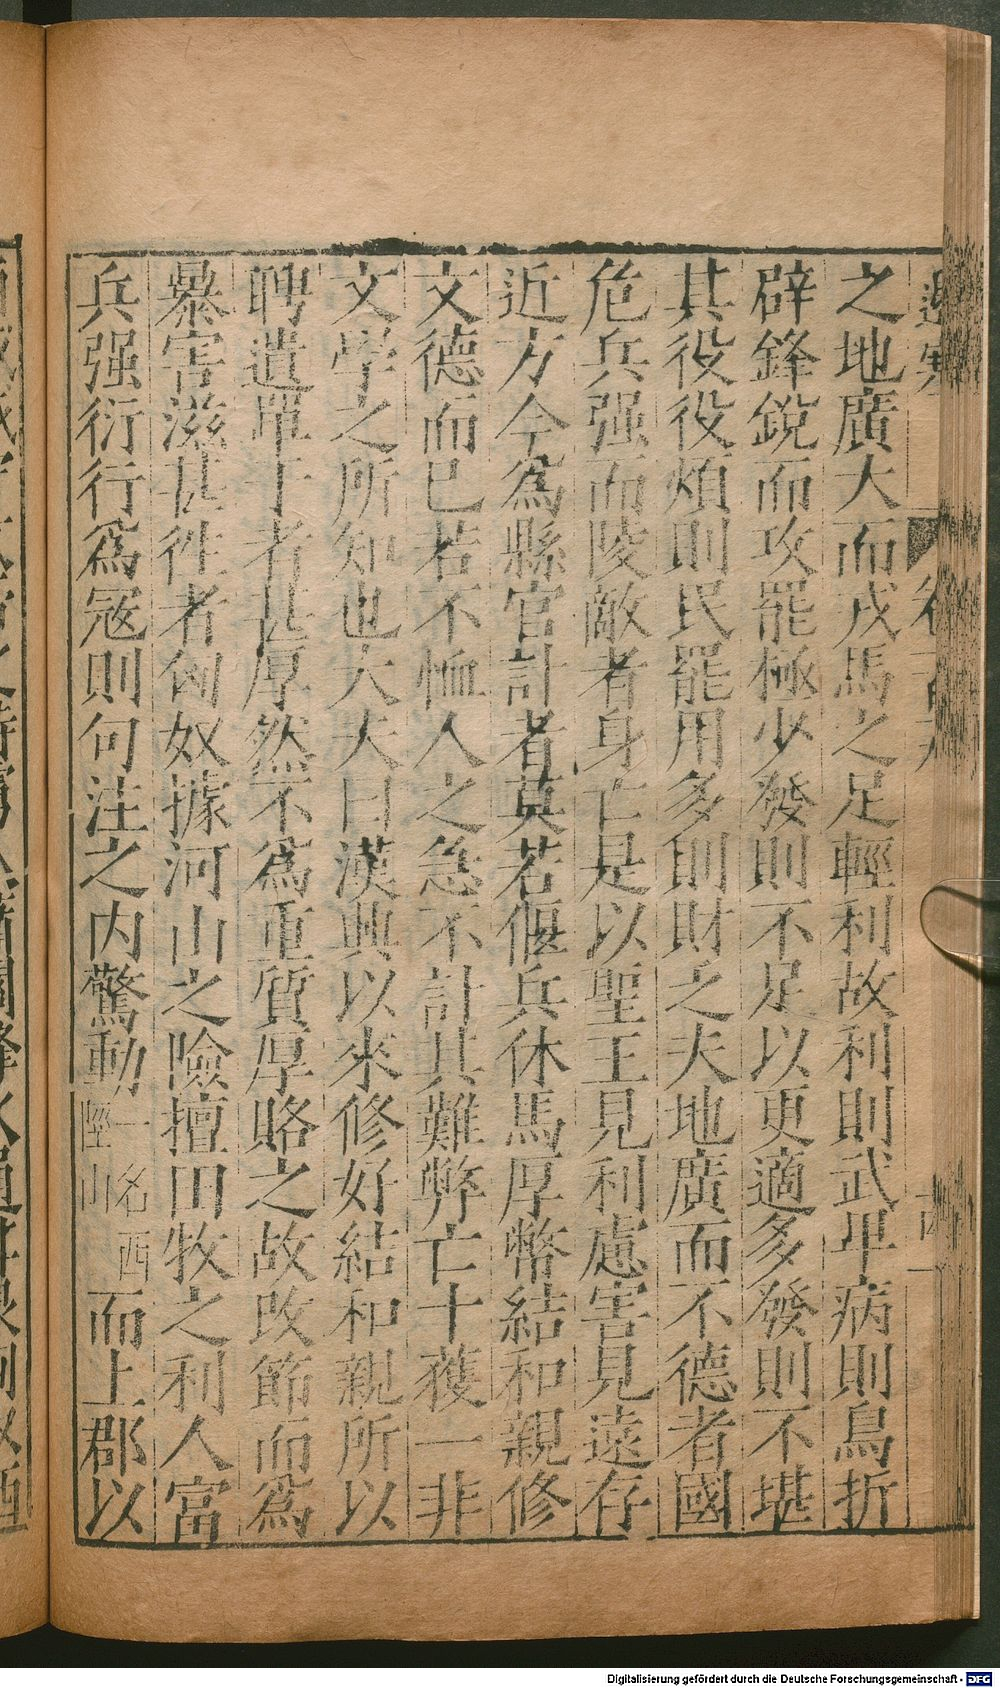 之地廣大而戎馬之足輕利故利則武平病則鳥折
辟鋒銳而攻罷極少發則不足以更適多發則不堪
其役役煩則民罷用多則財乏夫地廣而不德者國
危兵强而陵敵者身亡是以聖王見利慮害見遠存
近方今為縣官計者莫若偃兵休馬厚幣結和親修
文德而巳若不恤人之急不計其難弊亡十獲一非
文学之所知也大夫曰漢興以來修好結和親所以
聘遺單于者甚厚然不為重質厚賂之故改節而為
暴害滋甚徃者匈奴據河山之險擅田牧之利人富
兵强衍行為冦則句注之内驚動一名西陘山而上郡以
Digitalisierung gefördert durch die Deutsche Forschungsgemeinschaft - DFG